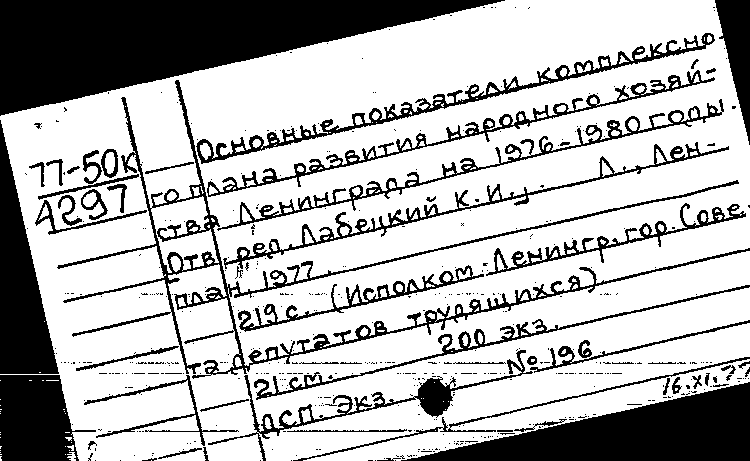 77-50к
4297
Основные показатели комплексно-
го плана развития народного хозяй-
ства Ленинграда на 1976-1980 годы.
Отв. ред. Лабецкий К.И., Л., Лен-
план, 1977.
219 с. (Исполком Ленингр. гор. Сове-
та депутатов трудящихся)
21 см. 200 экз.
ДСП. Экз. № 196.
16.XI.77